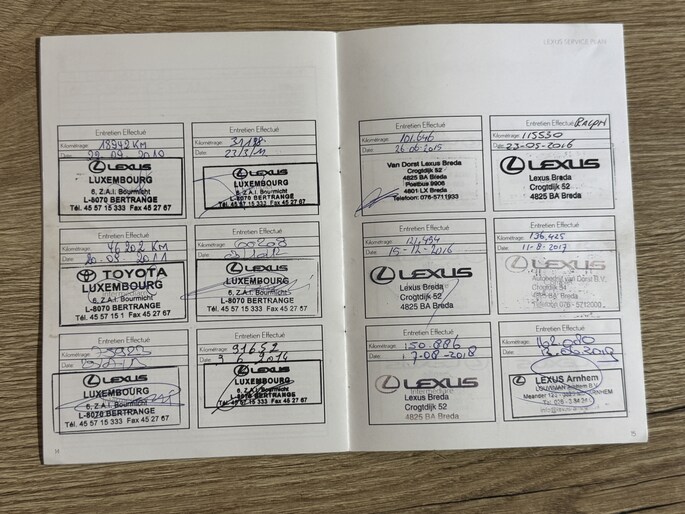 LEXUS SERVICE PLAN
Entretien Effectué
Kilométrage: 18942 KM
Date: 29.09.2010
LEXUS
LUXEMBOURG
6, Z.A.I. Bourmicht
L-8070 BERTRANGE
Tél. 45 57 15 333 Fax 45 27 67
Entretien Effectué
Kilométrage: 31198
Date: 23/3/11
LEXUS
LUXEMBOURG
6, Z.A.I. Bourmicht
L-8070 BERTRANGE
Tél. 45 57 15 333 Fax 45 27 67
Entretien Effectué
Kilométrage: 46202 KM
Date: 20.09.2011
TOYOTA
LUXEMBOURG
6, Z.A.I. Bourmicht
L-8070 BERTRANGE
Tél. 45 57 15 1 Fax 45 27 67
Entretien Effectué
Kilométrage: 60203
Date:
LEXUS
LUXEMBOURG
6, Z.A.I. Bourmicht
L-8070 BERTRANGE
Tél. 45 57 15 333 Fax 45 27 67
Entretien Effectué
Kilométrage:
Date:
LEXUS
LUXEMBOURG
6, Z.A.I. Bourmicht
L-8070 BERTRANGE
Tél. 45 57 15 333 Fax 45 27 67
Entretien Effectué
Kilométrage: 91652
Date: 9 6 2014
LEXUS
LUXEMBOURG
6, Z.A.I. Bourmicht
L-8070 BERTRANGE
Tél. 45 57 15 333 Fax 45 27 67
14
Entretien Effectué
Kilométrage: 101.646
Date: 26-06-2015
Van Dorst Lexus Breda
Crogtdijk 52
4825 BA Breda
Postbus 9906
4801 LX Breda
Telefoon: 076-5711933
Entretien Effectué RALPH
Kilométrage: 115530
Date: 23-05-2016
LEXUS
Lexus Breda
Crogtdijk 52
4825 BA Breda
Entretien Effectué
Kilométrage: 121,494
Date: 15-12-2016
LEXUS
Lexus Breda
Crogtdijk 52
4825 BA Breda
Entretien Effectué
Kilométrage: 136,425
Date: 11-8-2017
LEXUS
Entretien Effectué
Kilométrage: 150.886
Date: 17-08-2018
LEXUS
Lexus Breda
Crogtdijk 52
4825 BA Breda
Entretien Effectué
Kilométrage:
Date:
LEXUS Arnhem
15